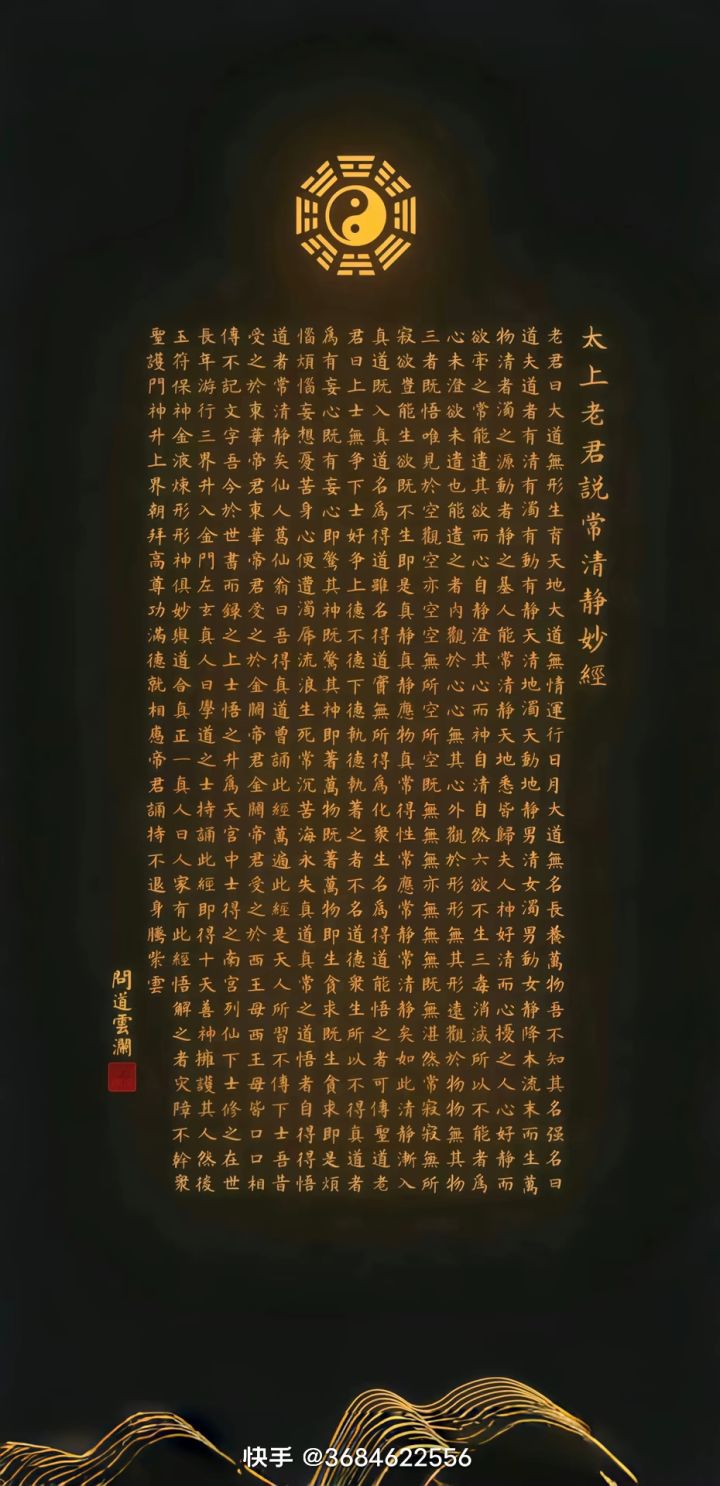 太上老君説常清静妙經
老君曰大道無形生育天地大道無情運行日月大道無名長養萬物吾不知其名强名曰
道夫道者有清有濁有動有静天清地濁天動地静男清女濁男動女静降本流末而生萬
物清者濁之源動者静之基人能常清静天地悉皆歸夫人神好清而心擾之人心好静而
欲牽之常能遣其欲而心自静澄其心而神自清自然六欲不生三毒消滅所以不能者爲
心未澄欲未遣也能遣之者内觀於心心無其心外觀於形形無其形遠觀於物物無其物
三者既悟唯見於空觀空亦空空無所空所空既無無無亦無無無既無湛然常寂寂無所
寂欲豈能生欲既不生即是真静真静應物真常得性常應常静常清静矣如此清静漸入
真道既入真道名爲得道雖名得道實無所得爲化衆生名爲得道能悟之者可傳聖道老
君曰上士無争下士好争上德不德下德執德執著之者不名道德衆生所以不得真道者
爲有妄心既有妄心即驚其神既驚其神即著萬物既著萬物即生貪求既生貪求即是煩
惱煩惱妄想憂苦身心便遭濁辱流浪生死常沉苦海永失真道真常之道悟者自得得悟
道者常清静矣仙人葛仙翁曰吾得真道曾誦此經萬遍此經是天人所習不傳下士吾昔
受之於東華帝君東華帝君受之於金闕帝君金闕帝君受之於西王母西王母皆口口相
傳不記文字吾今於世書而録之上士悟之升爲天宫中士得之南宫列仙下士修之在世
長年游行三界升入金門左玄真人曰學道之士持誦此經即得十天善神擁護其人然後
玉符保神金液煉形形神俱妙與道合真正一真人曰人家有此經悟解之者灾障不幹衆
聖護門神升上界朝拜高尊功滿德就相應帝君誦持不退身騰紫雲
問道雲瀾
快手 @3684622556